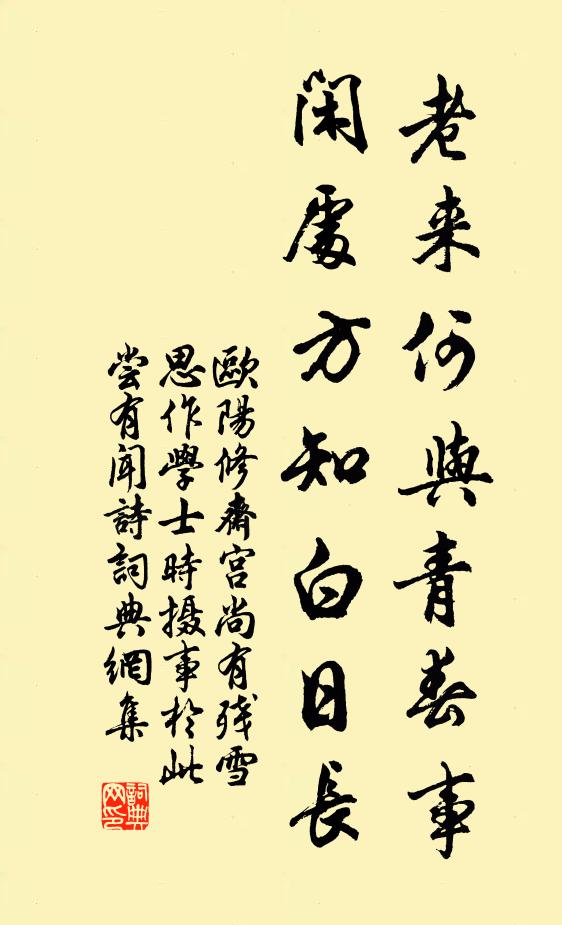 老来何與青春事
閑處方知白日長
歐陽修齋宮尚有殘雪
思作學士時摄事於此
嘗有聞詩詞典網集
詞典網印